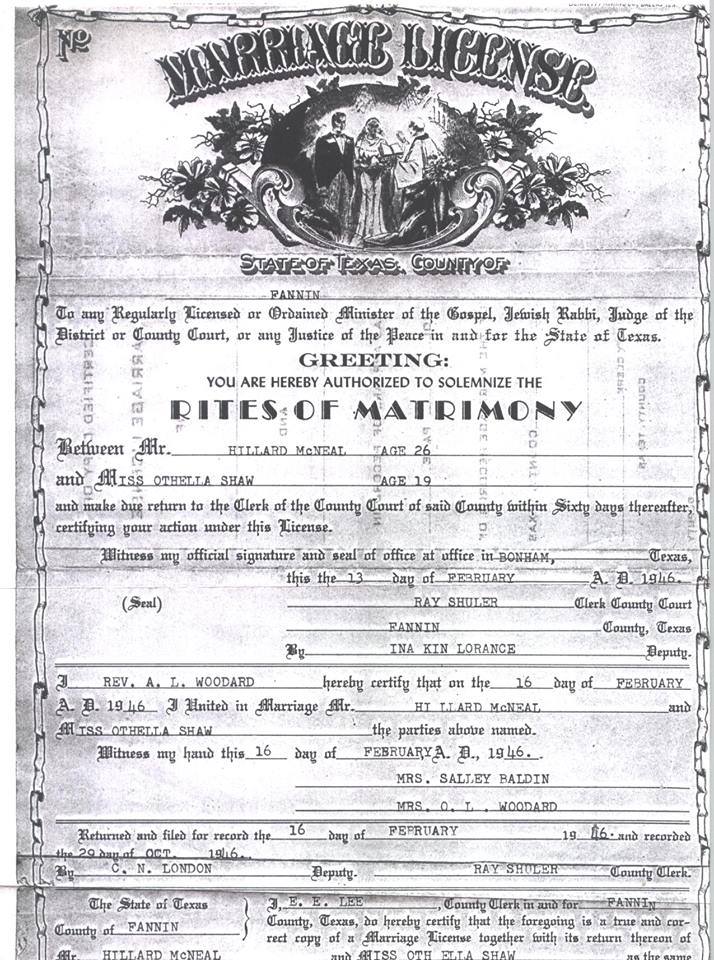 No
MARRIAGE LICENSE
STATE OF TEXAS, COUNTY OF
FANNIN
To any Regularly Licensed or Ordained Minister of the Gospel, Jewish Rabbi, Judge of the
District or County Court, or any Justice of the Peace in and for the State of Texas.
GREETING:
YOU ARE HEREBY AUTHORIZED TO SOLEMNIZE THE
RITES OF MATRIMONY
Between Mr. HILLARD McNEAL AGE 26
and MISS OTHELLA SHAW AGE 19
and make due return to the Clerk of the County Court of said County within Sixty days thereafter,
certifying your action under this License.
Witness my official signature and seal of office at office in BONHAM, Texas,
this the 13 day of FEBRUARY A. D. 1946.
(Seal) RAY SHULER Clerk County Court
FANNIN County, Texas
By INA KIN LORANCE Deputy.
I REV. A. L. WOODARD hereby certify that on the 16 day of FEBRUARY
A. D. 1946 I United in Marriage Mr. HI LLARD McNEAL and
MISS OTHELLA SHAW the parties above named.
Witness my hand this 16 day of FEBRUARY A. D., 1946.
MRS. SALLEY BALDIN
MRS. O. L. WOODARD
Returned and filed for record the 16 day of FEBRUARY 1946. and recorded
the 29 day of OCT. 1946.
By C. N. LONDON Deputy. RAY SHULER County Clerk.
The State of Texas
County of FANNIN
I, E. E. LEE, County Clerk in and for FANNIN
County, Texas, do hereby certify that the foregoing is a true and cor-
rect copy of a Marriage License together with its return thereon of
Mr. HILLARD McNEAL and MISS OTH ELLA SHAW as the same